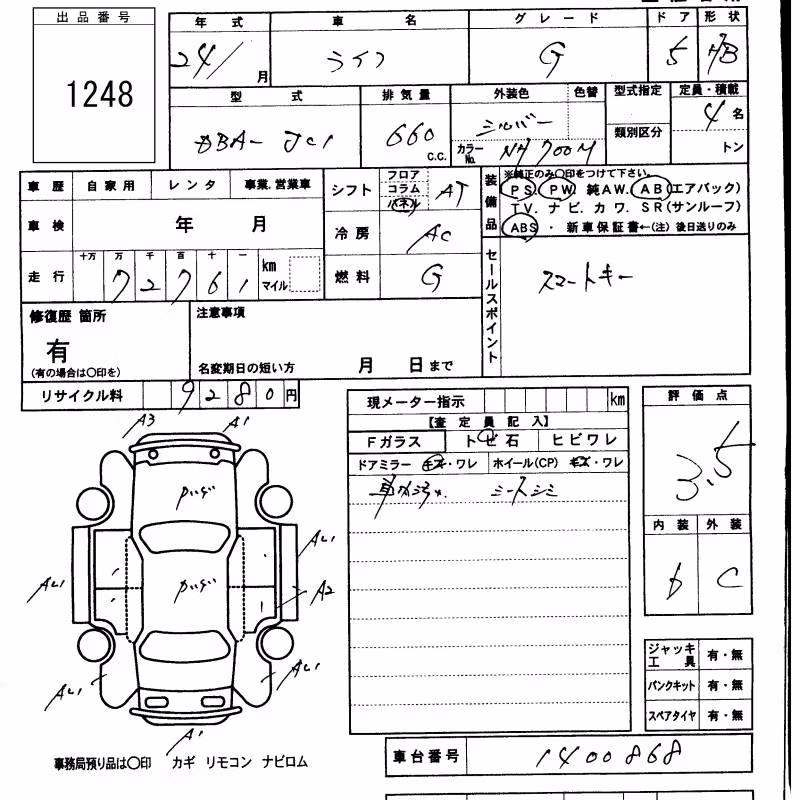 出品番号
1248
年式 車名 グレード ドア 形状
24/ 月 ライフ G 5 HB
型式 排気量 外装色 色替 型式指定 定員・積載
DBA- JC1 660 c.c. シルバー カラーNo. NH700M 類別区分 4 名 トン
車歴 自家用 レンタ 事業.営業車
車検 年 月
走行 十万 万 千 百 十 一
7 2 7 6 1 km マイル
シフト フロア コラム パネル AT
冷房 AC
燃料 G
装備品
※純正のみ○印をつけて下さい。
PS. PW. 純AW. AB(エアバック)
TV. ナビ. カワ. SR(サンルーフ)
ABS ・ 新車保証書←(注)後日送りのみ
セールスポイント
スマートキー
修復歴 箇所
有
(有の場合は○印を)
注意事項
名変期日の短い方 月 日まで
リサイクル料 9 2 8 0 円
現メーター指示 km
【査定員記入】
Fガラス トビ石 ヒビワレ
ドアミラー キズ・ワレ ホイール(CP) キズ・ワレ
シートシミ
評価点
3.5
内装 外装
b C
ジャッキ工具 有・無
パンクキット 有・無
スペアタイヤ 有・無
A3 A1
AU1
AU1
A2
AU1
AU1
A1
事務局預り品は○印 カギ リモコン ナビロム
車台番号 1400868